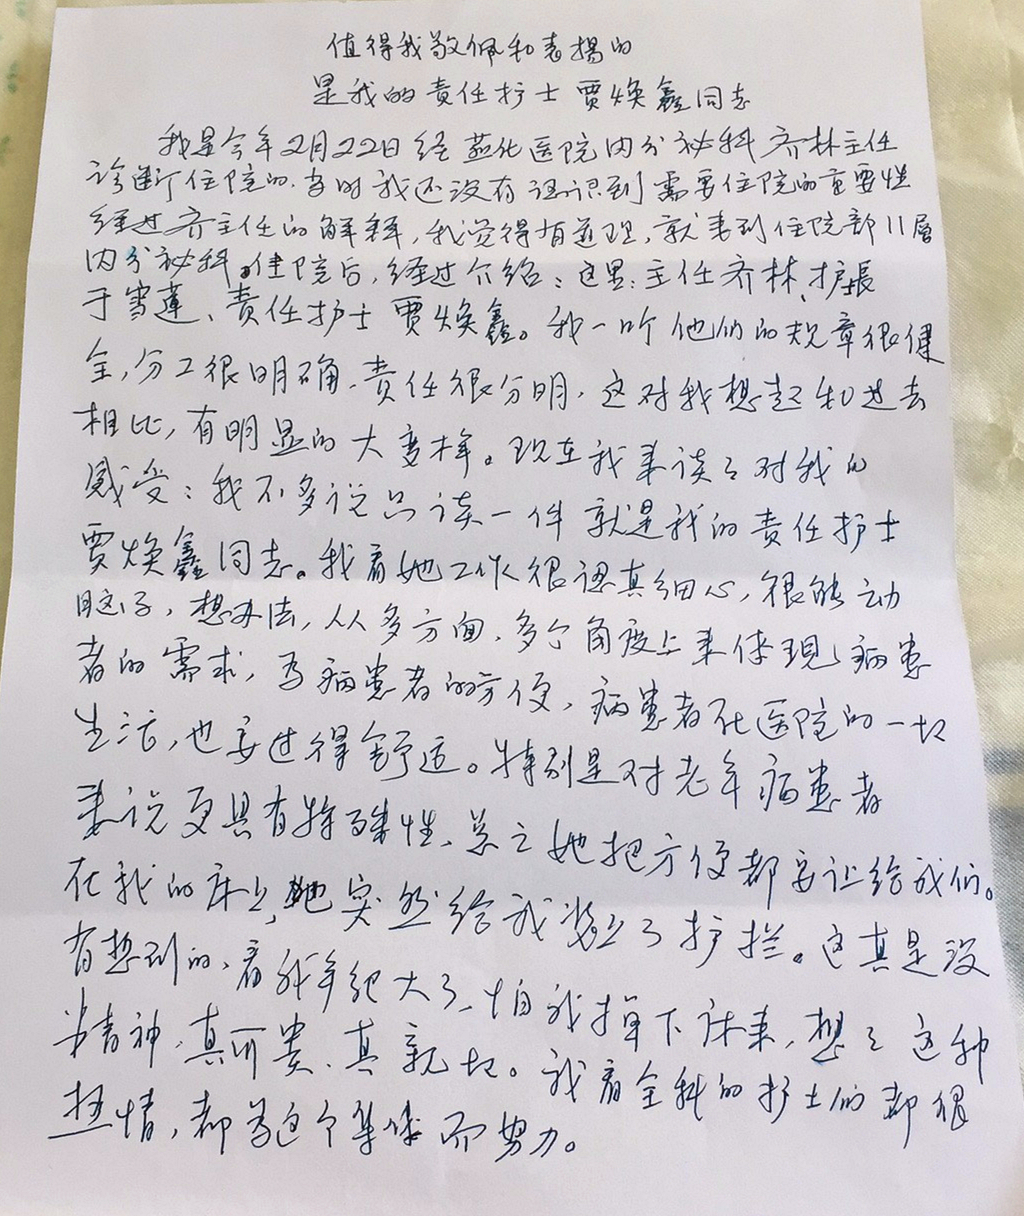 值得我敬佩和表揚的
是我的責任护士贾焕鑫同志
我是今年2月22日经燕化医院内分秘科齐林主任
诊断住院的.当时我还没有認识到需要住院的重要性
经过齐主任的解释,我觉得有道理,就来到住院部11層
内分秘科.住院后,经过介绍:这里:主任齐林、护長
于雪蓮、責任护士贾焕鑫。我一听他们的规章很健
全,分工很明确.責任很分明,这对我想起和过去
相比,有明显的大变样。现在我来谈々对我的
感受:我不多说只谈一件就是我的責任护士
贾焕鑫同志。我看她工作很認真细心,很能动
脑子,想办法,从多方面.多个角度上来体現病患
者的需求,为病患者的方便,病患者在医院的一切
生活,也要过得舒适。特别是对老年病患者
来说更具有特殊性,总之她把方便都要让给我们。
在我的床上,她突然给我装上了护拦。这真是没
有想到的、看我年纪大了、怕我掉下床来,想々这种
精神.真可贵、真親切。我看全科的护士们都很
热情,都为这个集体而努力。